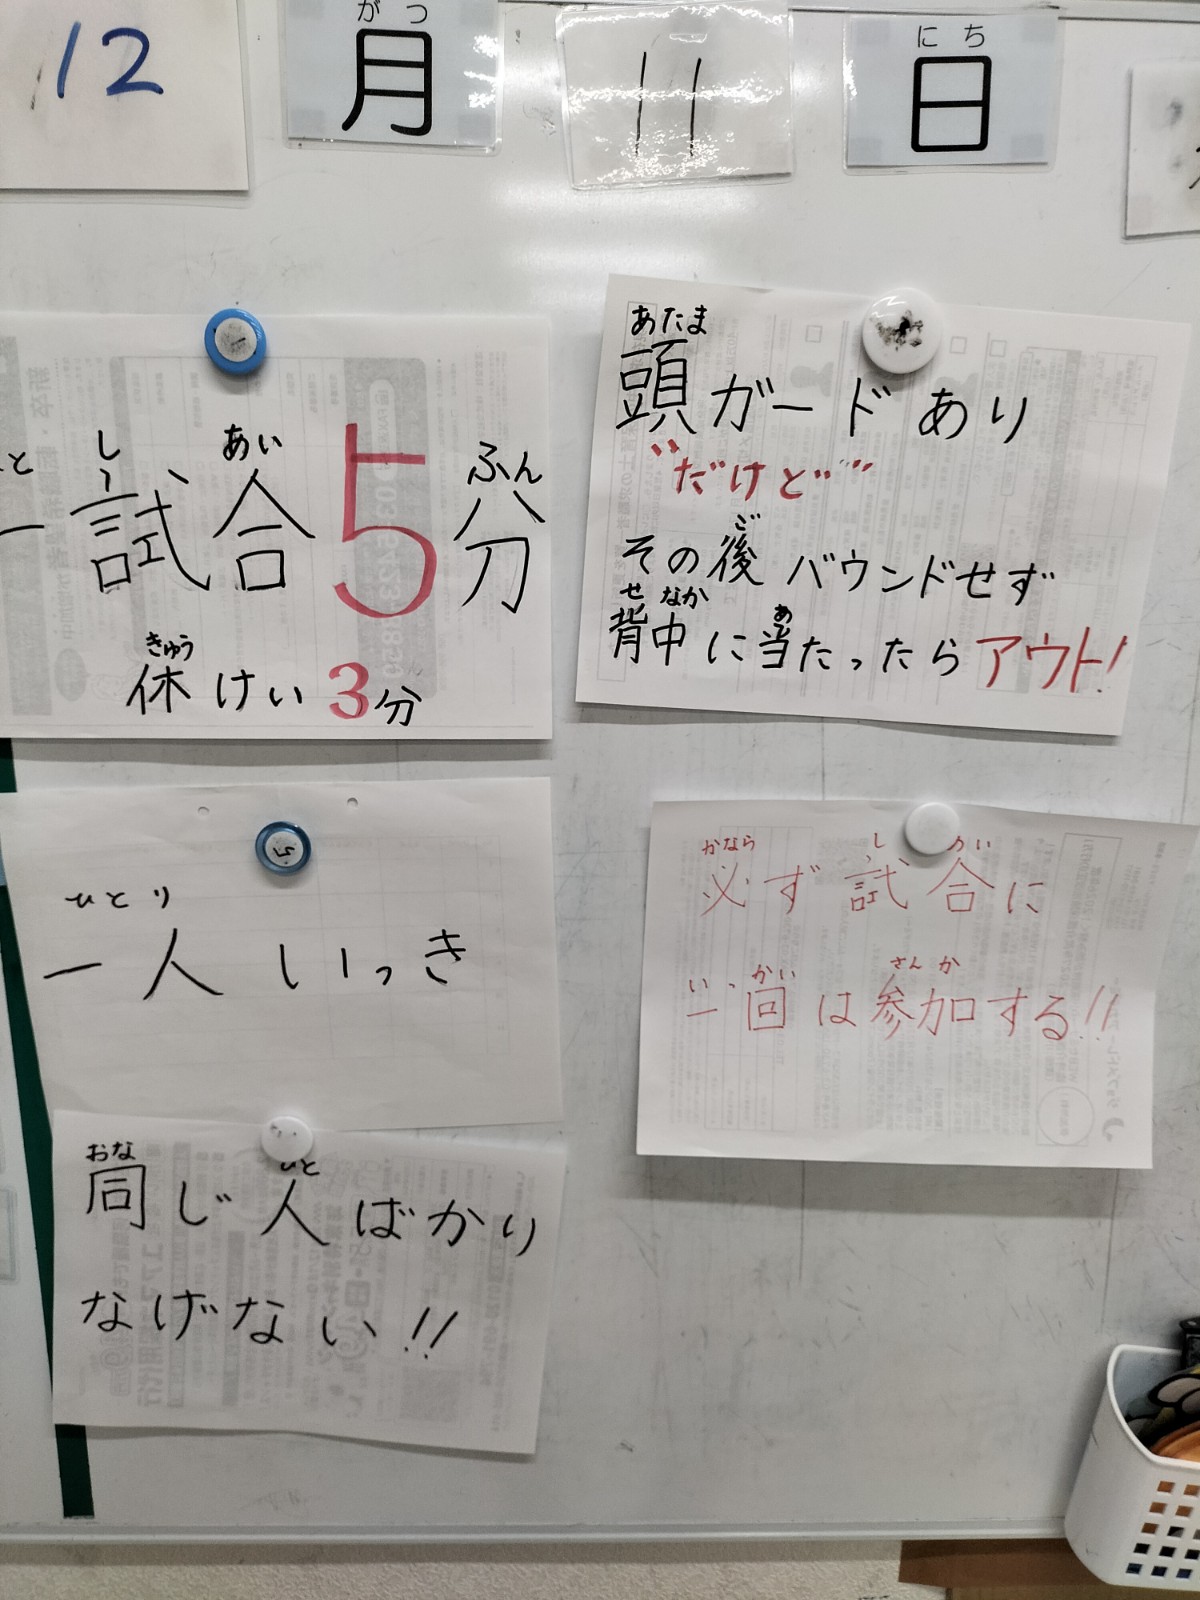 がつ にち
12 月 11 日
し あい ふん
一試合5分
きゅう
休けい3分
あたま
頭ガードあり
"だけど"
ご
その後バウンドせず
せなか あ
背中に当たったらアウト!
ひとり
一人いっき
かなら し あい
必ず試合に
いっかい さんか
一回は参加する!!
おな ひと
同じ人ばかり
なげない!!